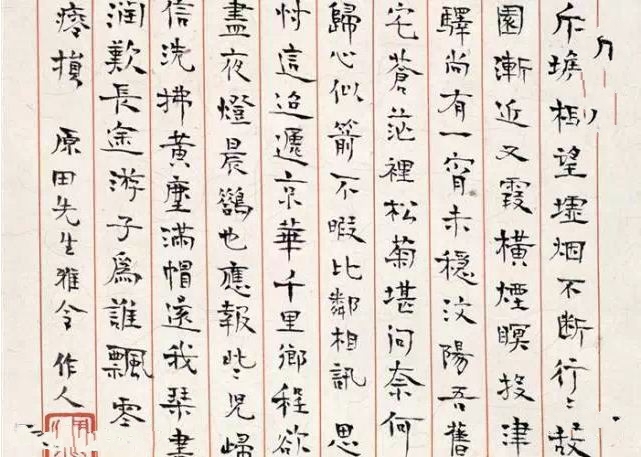 斥堠相望墟烟不断行々故
園漸近又霞橫煙瞑投津
驛尚有一宵未穩汶陽吾舊
宅蒼茫裡松菊堪问奈何
歸心似箭不暇比鄰相訊 思
忖這迢遞京華千里鄉程欲
盡夜燈晨鵲也應報些々兒歸
信洗拂黃塵滿帽還我琹書
润歎長途游子為誰飄零
損 原田先生雅令 作人